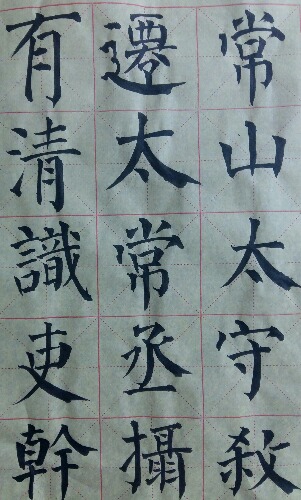 常山太守敘
遷太常丞攝
有清識吏幹